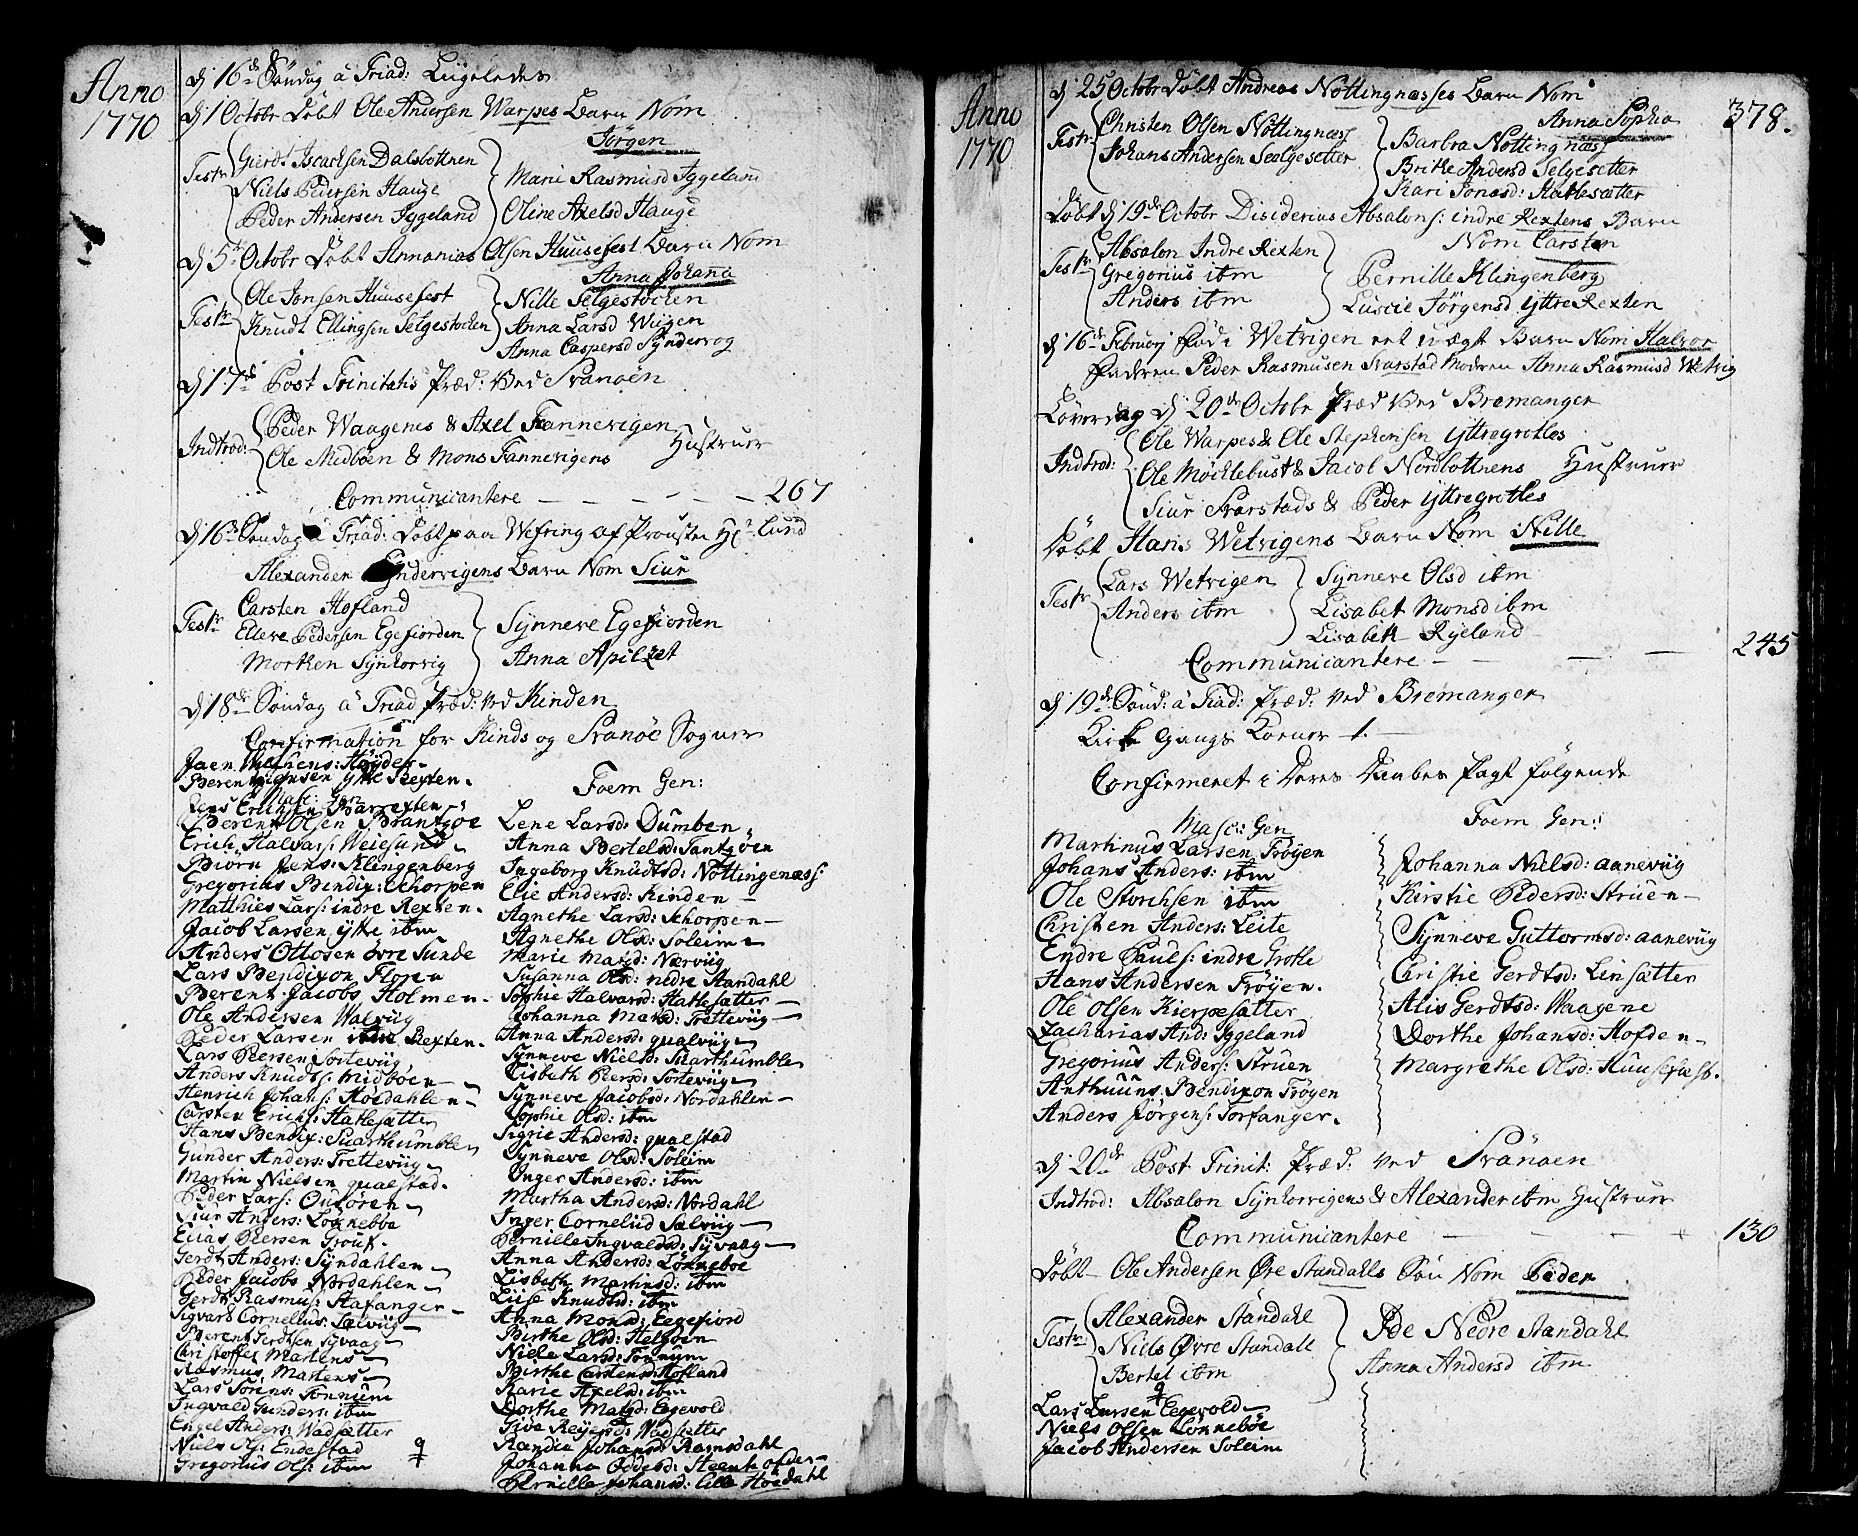 Anno
1770
dj 16de Søndag a Triad:
dj 1 Octobr Døbt Ole Andersen Warpes Barn Nom
Jørgen
Test:
Gierdt Iscachsen Dalsbottnen
Niels Pedersen Hauge
Peder Andersen Iggeland
Marie Rasmusd Iggeland
Oline Axelsd Hauge
dj 5te Octobr Døbt Annanias Olsen Huusefest Barn Nom
Anna Johanna
Testr
Ole Jonsen Huusefest
Knudt Ellingsen Selgestochen
Nille Selgestochen
Anna Larsd Wiigen
Anna Caspersd Syndervog
dj 17de Post Trinitatis Præd: Ved Svanøen
Indtrod:
Peder Waagenes & Axel Fannevigen
Ole Midbøen & Mons Fannevigens
Hustruer
Communicantere — — — — — 267
dj 16de Søndag a Triad: Døbt paa Wefring af Prousten Hr Lund
Alexander Barn Nom Siur
Testr
Carsten Hofland
Elleve Pedersen Egefiorden
Morten Synhorvig
Synneve Egefiorden
Anna Apilset
dj 18de Søndag a Triad Præd: ved Kinden
Confirmation for Kinds og Svanøe Sogner
Berent ytte Rexten.
Masc: Gen
Jens Erichsen Barrexten
Berent Olsen Brantzøe
Erich Halvars: Weiesund
Biørn Jens: Klingenberg
Gregorius Bendix: Schorpen
Matthies Lars: indre Rexten.
Jacob Larsen ytte ibm
Anders Ottosen øvre Sunde
Lars Bendixon Florøn
Berent Jacobs Holmen
Ole Andersen Walvüg
Peder Larsen Rexten.
Lars Persen Sortevüg
Anders Knudts: Midbøen
Henrich Johans: Høidahlen
Carsten Erichs: Hatlesætter
Hans Bendix: Suarthumblen
Gunder Anders: Trettevüg
Martin Nielsen qualstad.
Peder Lars:
Siur Anders: Lønnebøe
Elias Persen Grouf.
Gerdt Anders: Syndahlen
Peder Jacobs Nordahlen
Gerdt Rasmus: Stafanger
Sigvard Cornelius: Sælvüg
Berent Gerdtsen Syvaag
Christoffer Martens
Rasmus Martens
Lars Sørens: Tonnüm
Ingvald Gunders: ibm
Engel Anders: Wadsætter
Niels Endestad
Gregorius Ols: ibm
Foem Gen:
Lene Larsd: Dumben
Anna Bertelsd: Tantzøen
Ingeborg Knudtsd: Nottingenæss:
Elie Andersd: Kinden
Agnethe Larsd: Schorpen
Agnethe Olsd: Soleim
Marie Marsd: Nærvüg
Susanna Olsd: nedre Standahl
Sophie Halvarsd: Hatlesætter
Johanna Marsd: Trettevüg
Anna Andersd: qualvüg
Synneve Nielsd: Suarthumblen
Lisbeth Persd: Sortevüg
Synneve Jacobsd: Nordahlen
Sophie Olsd: ibm
Sigrie Andersd: qualstad
Synneve Olsd: Soleim
Inger Andersd: ibm
Martha Andersd: Nordahl
Inger Corneliid Sælvüg
Pernille Ingvaldsd: Syvaag
Anna Andersd: Lønnebøe
Lisbeth Martinsd: ibm
Liise Knudtsd: ibm
Anna Monsd: Eegefiord
Birthe Olsd: Helgøen
Nille Larsd: Tonnüm
Birthe Carstensd: Hofland
Karie Axelsd: ibm
Dorthe Matsd: Eegevold
Sive Reyersd: Wadsætter
Randie Johansd Ramsdahl
Johanna Oddesd: Steenhofden
Pernille Johansd: Lille Høidahl
Anno
1770
378.
dj 25 Octobr Døbt Andreas Nottingnæsses Barn Nom
Anna Sophia
Testr
Christen Olsen Nottingnæss
Johans Andersen Seolgesetter
Barbra Nottingnæss
Brithe Andersd Selgesetter
Kari Jonasd: Hatlesætter
Døbt dj 19de Octobr Disiderius Absalons: indre Rextens Barn
Nom Carsten
Testr
Absalon Indre Rexten
Gregorius ibm
Anders ibm
Pernille Klingenberg
Luscie Jørgensd ytre Rexten
dj 16de Februarj Fød i Wetvigen eet uægt Barn Nom Halvor
Fadren Peder Rasmusen Svarstad Modren Anna Rasmusd Wetvig
Løverdag dj 20de Octobr Præd Ved Bremanger
Indtrod:
Ole Warpes & Ole Stephensen yttregrotles
Ole Mochlebust & Jacob Nordbottnens Hustruer
Siur Svarstads & Peder yttregrotles
Døbt Hans Wetvigens Barn Nom Nille
Testr
Lars Wetvigen
Anders ibm
Synneve Olsd ibm
Lisabet Monsd ibm
Lisabeth Ryeland
Communicantere — — — 245
dj 19de Sønd: a Triad: Præd: ved Bremanger
Kirke Gangs Koner 1.
Confirmeret i Deres Daabes Pagt følgende
Masc: Gen
Martinus Larsen Frøyen
Johans Anders: ibm
Ole Storchsen ibm
Christen Anders: Leite
Endre Pauls: indre Grotle
Hans Andersen Frøyen.
Ole Olsen Kierpesætter
Zacharias And: Iggeland
Gregorius Anders: Struen
Anthuuns Bendixon Frøyen
Anders Jørgens: Torfanger.
Foem Gen:
Johanna Nielsd: aanevüg
Kirstie Pedersd: Struen
Synneve Guttormsd: aanevüg
Christie Gerdtsd: Linsætter
Alis Gerdtsd: Waagene
Dorthe Johansd: Hofden
Margrethe Olsd: Huusefæst.
dj 20de Post Trinit: Præd: ved Svanøen
Indtrod: Absalon Synhorvigens & Alexander ibm Hustruer
Communicantere — — — 130
Døbt Ole Andersen Øre Standahls Søn Nom Peder
Testr
Alexander Standahl
Niels Øvre Standall
Bertel ibm
Ide Nedre Standahl
Anna Andersd ibm
Lars Larsen Eegevold
Niels Olsen Lønnebøe
Jacob Andersen Soleim